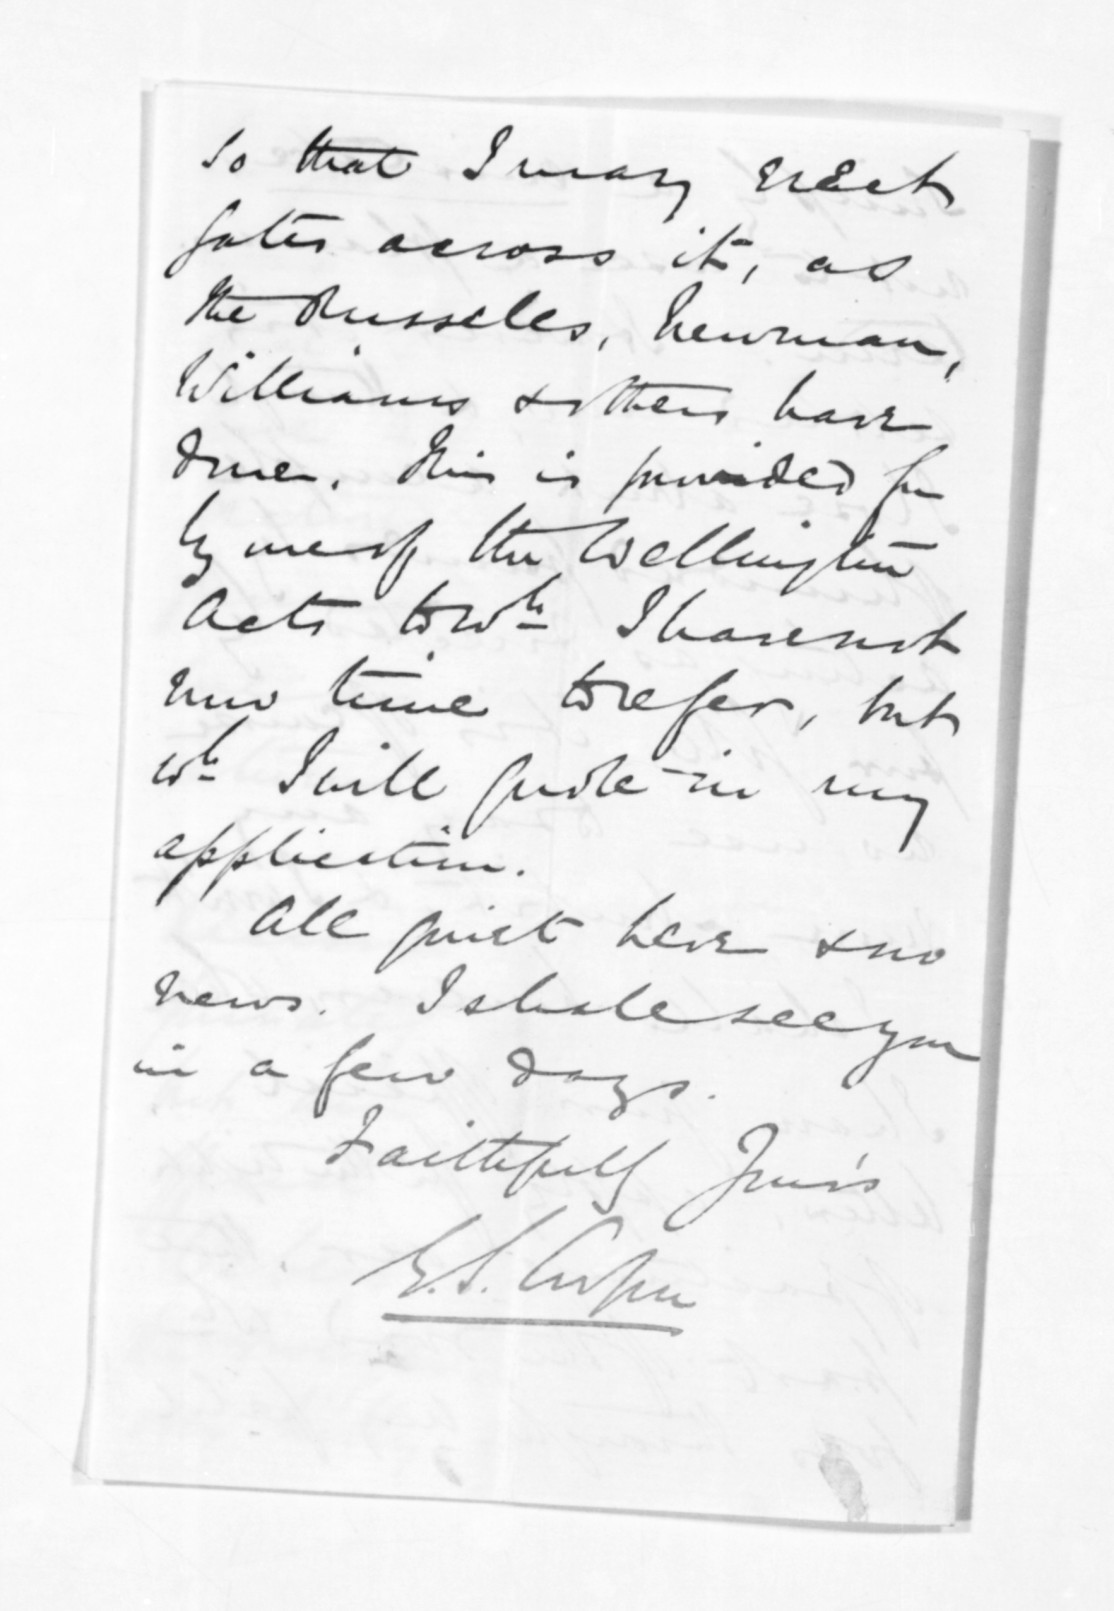 so that I may erect
gates across it, as
the Russells, Newman,
Williams & others have
done. This is provided for
by one of the Wellington
Acts to wh I have not
now time to refer, but
wh I will quote in my
application.
All quiet here & no
news. I shall see you
in a few days.
Faithfully Yours
G. S. Cooper